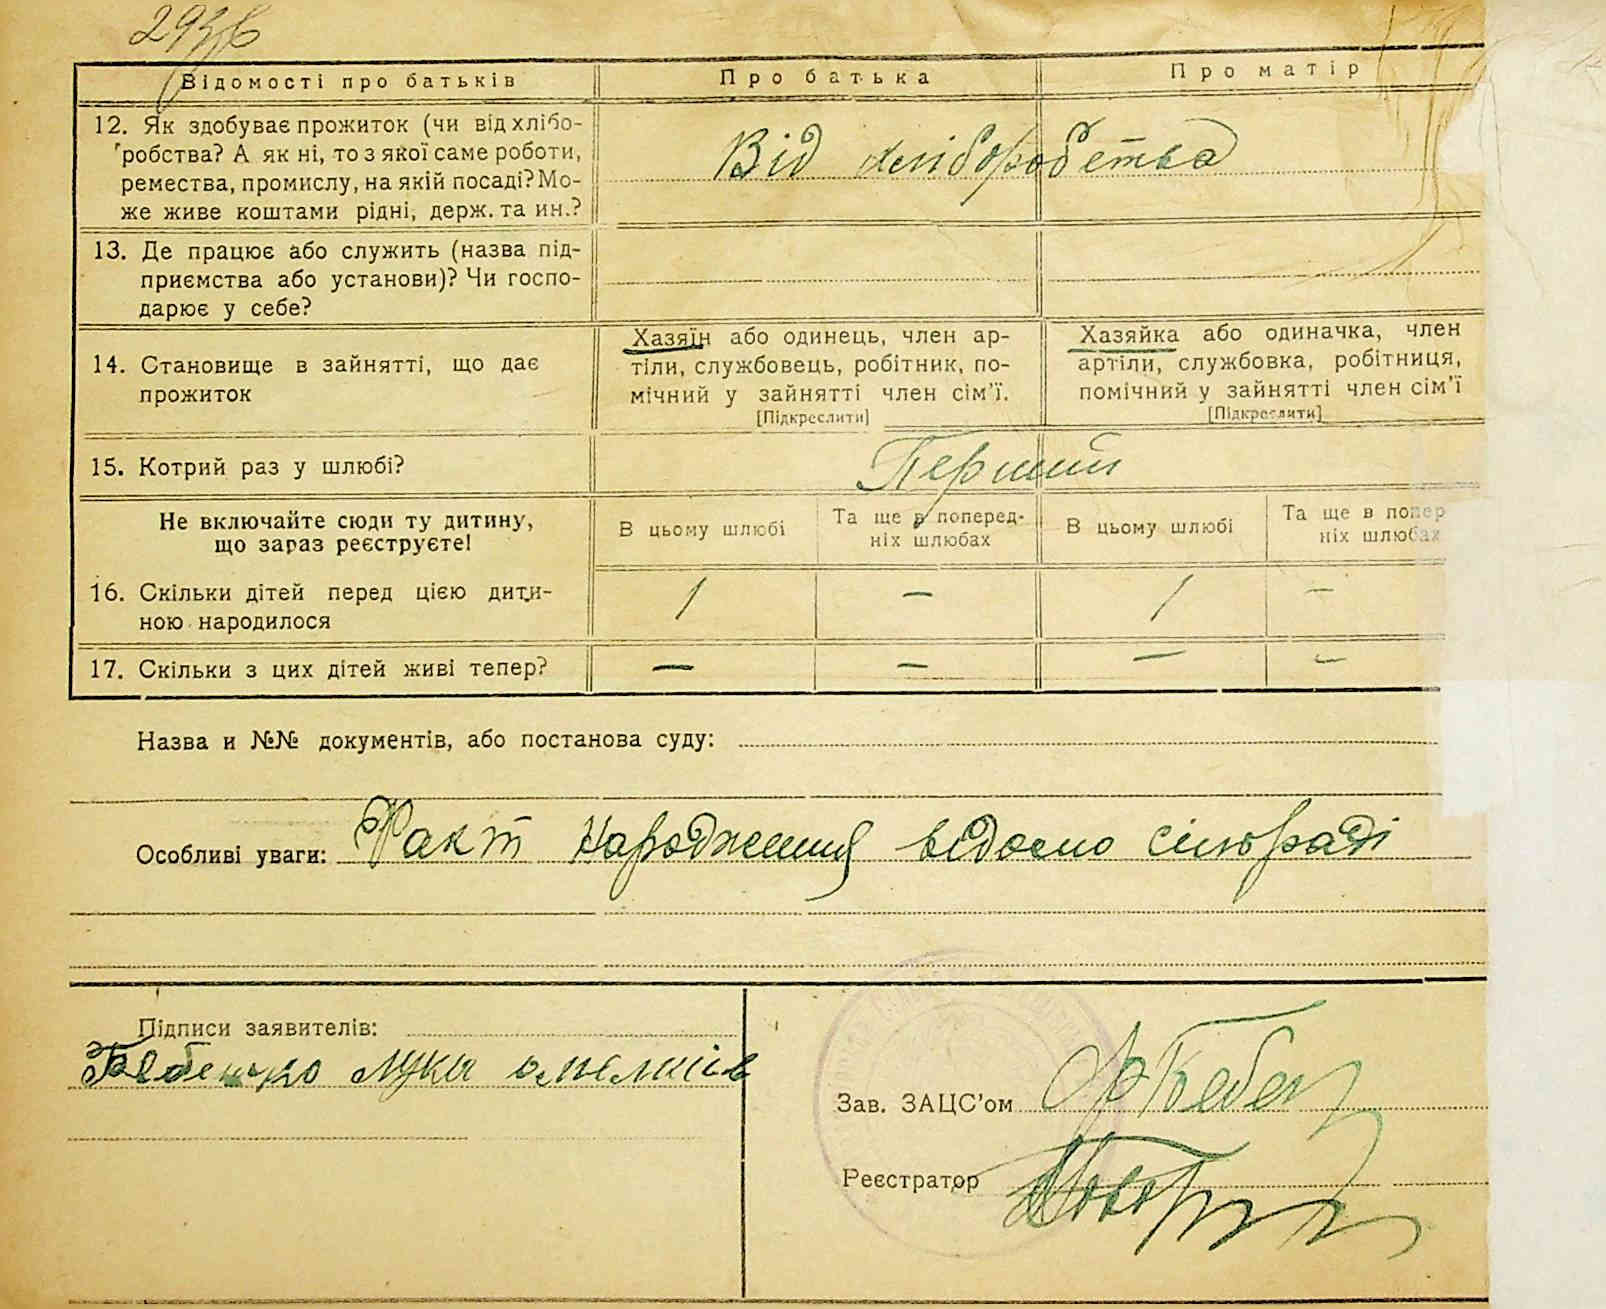 Відомості про батьків
Про батька
Про матір
12. Як здобуває прожиток (чи від хлібо-
робства? А як ні, то з якої саме роботи,
ремества, промислу, на якій посаді? Мо-
же живе коштами рідні, держ. та ин.?
Від хліборобства
13. Де працює або служить (назва під-
приємства або установи)? Чи госпо-
дарює у себе?
14. Становище в зайнятті, що дає
прожиток
Хазяїн або одинець, член ар-
тіли, службовець, робітник, по-
мічний у зайнятті член сім'ї.
[Підкреслити]
Хазяйка або одиначка, член
артіли, службовка, робітниця,
помічний у зайнятті член сім'ї
[Підкреслити]
15. Котрий раз у шлюбі?
Перший
Не включайте сюди ту дитину,
що зараз реєструєте!
В цьому шлюбі
Та ще в поперед-
ніх шлюбах
В цьому шлюбі
Та ще в попер
ніх шлюбах
16. Скільки дітей перед цією дити-
ною народилося
1 — 1 —
17. Скільки з цих дітей живі тепер?
— — — —
Назва и №№ документів, або постанова суду:
Особливі уваги: Факт народження відомо сільраді
Підписи заявителів:
Лука
Зав. ЗАЦС'ом
Реєстратор